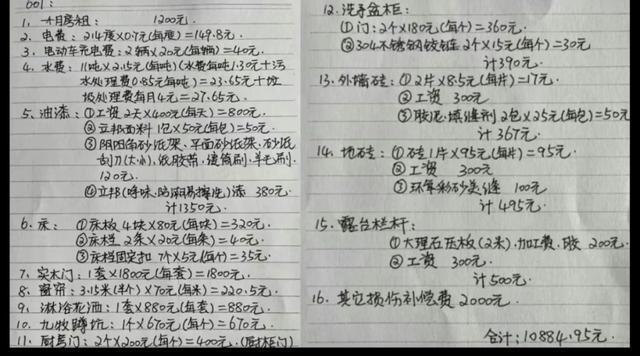 601:
1. 一个月房租: 1200元.
2. 电费: 214度×0.7元(每度)=149.8元.
3. 电动车充电费: 2辆×20元(每辆)=40元.
4. 水费: 11吨×2.15元(每吨)(水费每吨1.30元+污
水处理费0.85元每吨)=23.65元+垃
圾处理费每月4元=27.65元.
5. 油漆: ①工资2天×400元(每天)=800元.
②立邦面料1包×50元(每包)=50元.
③阴阳角砂纸架、平面砂纸架、砂纸
刮刀(大小)、纸胶带、滚筒刷、羊毛刷.
120元.
④立邦(呼吸,防潮易擦洗)漆 380元.
计1350元.
6. 床: ①床板4块×80元(每块)=320元.
②床栏2条×20元(每条)=40元.
③床栏固定扣7个×5元(每个)=35元.
7. 实木门: 1套×1800元(每套)=1800元.
8. 窗帘: 3.15米(半个)×70元(每米)=220.5元.
9. 淋浴花洒: 1套×880元(每套)=880元.
10. 九牧蹲坑: 1个×670元(每个)=670元.
11. 厨房门: 2个×200元(每个)=400元.(厨柜门)
12. 洗手盆柜:
①门: 2个×180元(每个)=360元.
②304不锈钢铰链2个×15元(每个)=30元
计390元.
13. 外墙砖: ①2片×8.5元(每片)=17元.
②工资 300元.
③胶泥、填缝剂2包×25元(每包)=50元
计367元.
14. 地砖: ①砖1片×95元(每片)=95元.
②工资 300元
③环氧彩砂美缝 100元
计495元.
15. 露台栏杆:
①大理石压板(2米)、加工费、胶 200元.
②工资 300元.
计500元.
16. 其它损伤补偿费2000元.
合计: 10884.95元.